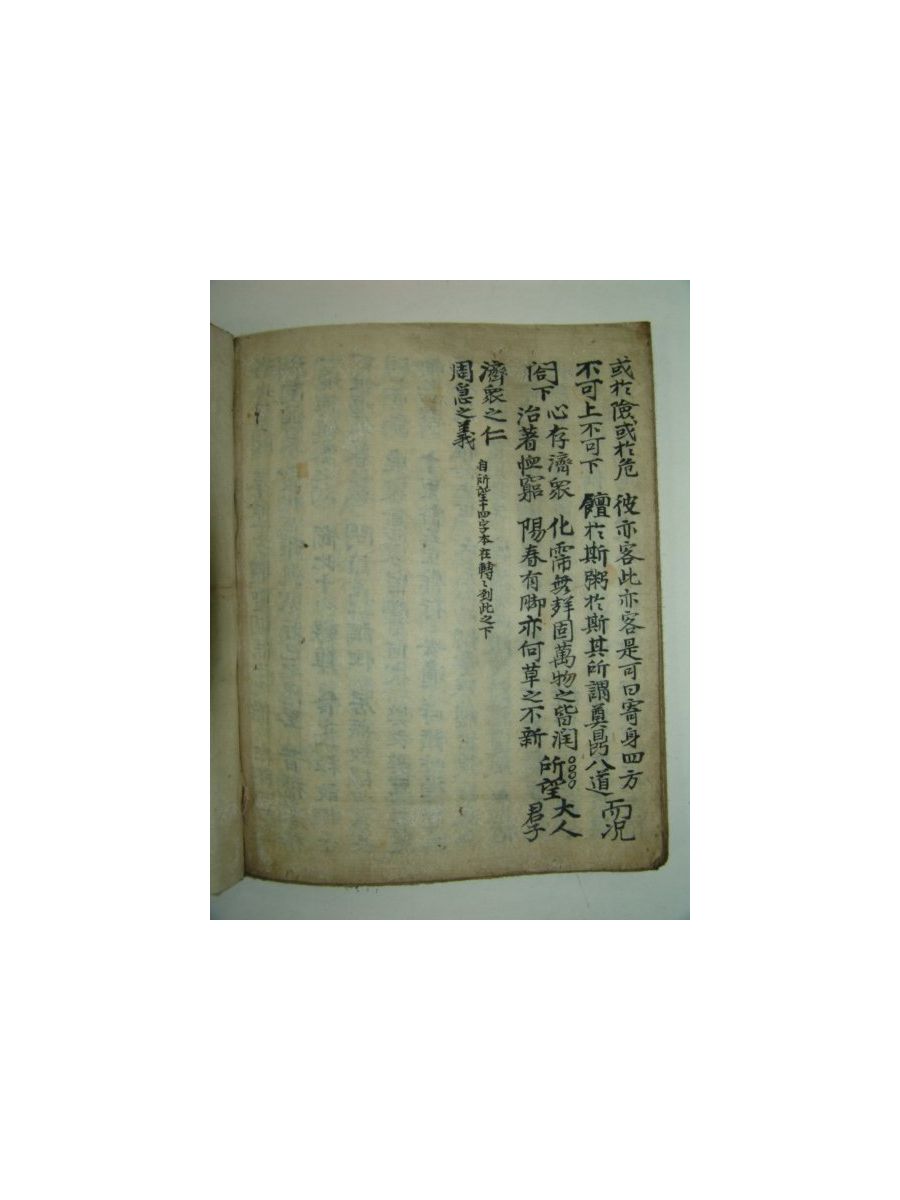 或於險或於危 彼亦客此亦客是可曰寄身四方
不可上不可下 饘於斯粥於斯其所謂奠鼎八道
而况
閤下
心存濟衆 化霈無垠固萬物之皆润
治著恤窮 陽春有脚亦何草之不新
○○○○
所望
大人
君子
濟衆之仁
周急之義
自所望十四字本在轉〻到此之下